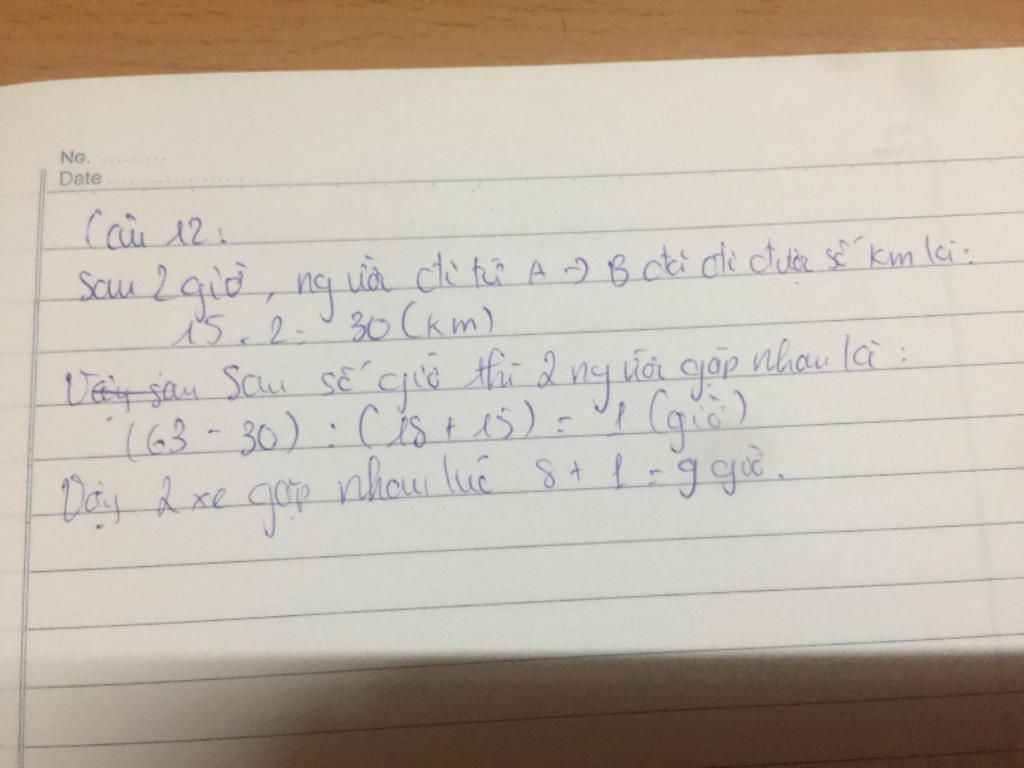 No. ..........
Date ......................
Câu 12:
Sau 2 giờ, người đi từ A → B đã đi được số km là:
15 . 2 = 30 (km)
Vậy sau Sau số giờ thì 2 người gặp nhau là:
(63 - 30) : (18 + 15) = 1 (giờ)
Vậy 2 xe gặp nhau lúc 8 + 1 = 9 giờ.